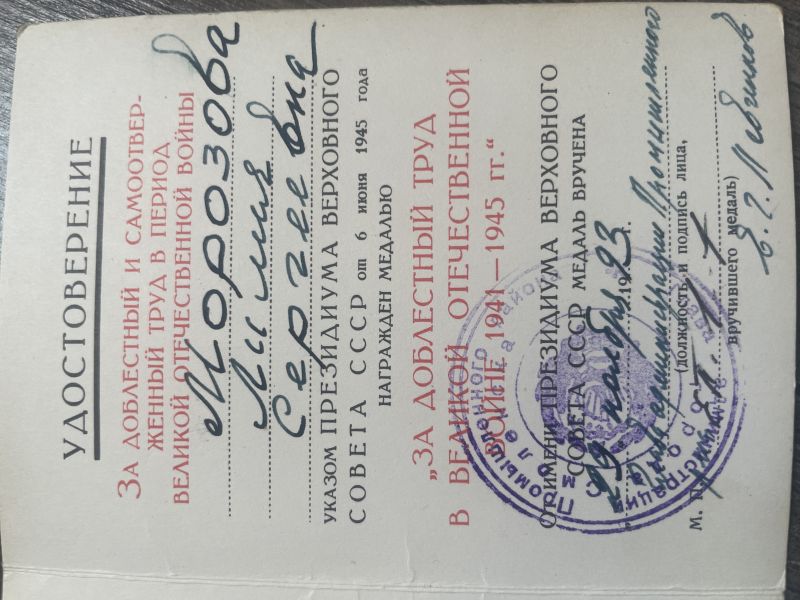 УДОСТОВЕРЕНИЕ
ЗА ДОБЛЕСТНЫЙ И САМООТВЕР-
ЖЕННЫЙ ТРУД В ПЕРИОД
ВЕЛИКОЙ ОТЕЧЕСТВЕННОЙ ВОЙНЫ
Морозова
Лилия
Сергеевна
УКАЗОМ ПРЕЗИДИУМА ВЕРХОВНОГО
СОВЕТА СССР от 6 июня 1945 года
НАГРАЖДЕН МЕДАЛЬЮ
„ЗА ДОБЛЕСТНЫЙ ТРУД
В ВЕЛИКОЙ ОТЕЧЕСТВЕННОЙ
ВОЙНЕ 1941—1945 ГГ."
ОТ ИМЕНИ ПРЕЗИДИУМА ВЕРХОВНОГО
СОВЕТА СССР МЕДАЛЬ ВРУЧЕНА
29 ноября 1993 г.
Глава администрации Промышленного
М. П.
(должность и подпись лица,
вручившего медаль)
Промышленного района